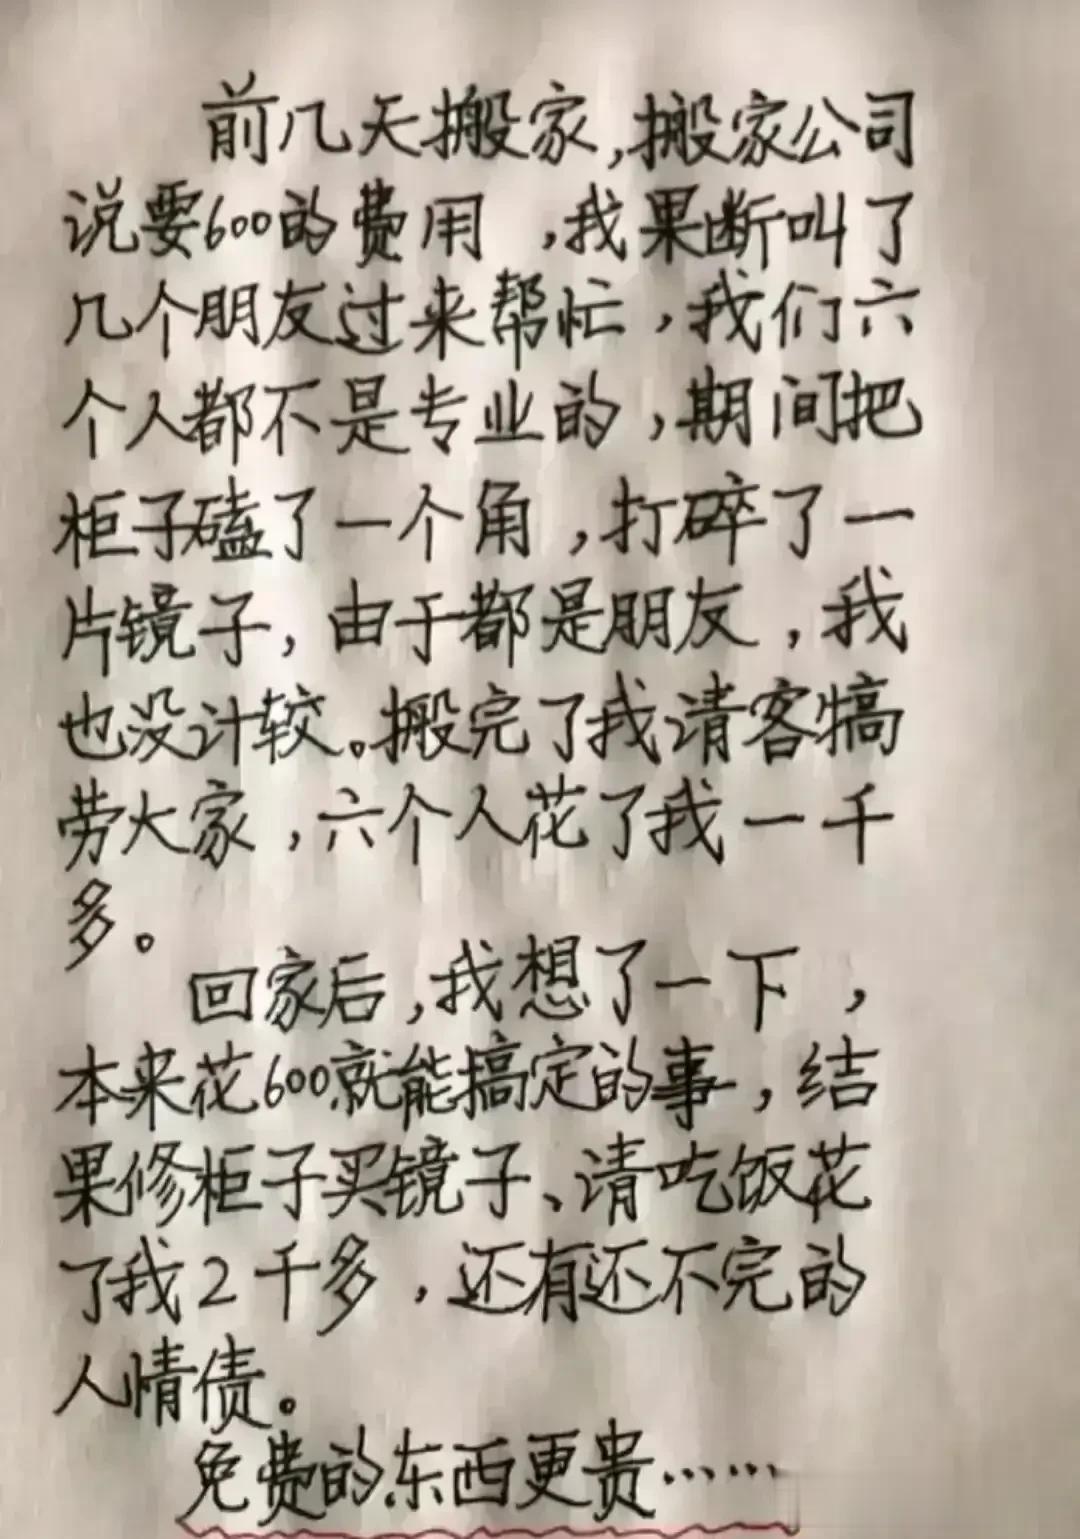 前几天搬家,搬家公司
说要600的费用,我果断叫了
几个朋友过来帮忙,我们六
个人都不是专业的,期间把
柜子磕了一个角,打碎了一
片镜子,由于都是朋友,我
也没计较。搬完了我请客犒
劳大家,六个人花了我一千
多。
回家后,我想了一下,
本来花600就能搞定的事,结
果修柜子买镜子、请吃饭花
了我2千多,还有还不完的
人情债。
免费的东西更贵……